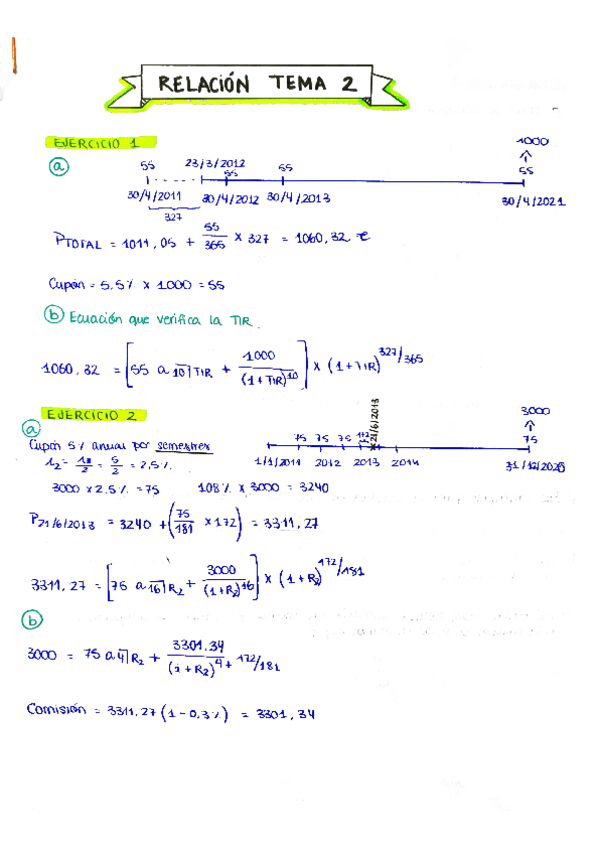 RELACIÓN TEMA 2
EJERCICIO 1
1000
a
55 23/3/2012 55 55 55
30/4/2011 30/4/2012 30/4/2013 30/4/2021
327
PTOTAL = 1011,05 + 55/365 × 327 = 1060,32 €
Cupón = 5,5% × 1000 = 55
b Ecuación que verifica la TIR.
1060,32 = [55 a 10|TIR + 1000/(1+TIR)^10] × (1+TIR)^327/365
EJERCICIO 2
a
21/6/2013
3000
Cupón 5% anual por semestres
75 75 75 172 75
1/1/2011 2012 2013 2014
i2 = = 5/2 = 2,5%
3000 × 2.5% = 75 108% × 3000 = 3240
P21/6/2013 = 3240 + (75/181 × 172) = 3311,27
3311,27 = [75 a 16|R2 + 3000/(1+R2)^16] × (1+R2)^172/181
b
3000 = 75 a 4|R2 + 3301.34/(1+R2)^4 + 172/181
Comisión = 3311,27 (1 - 0,3%) = 3301,34